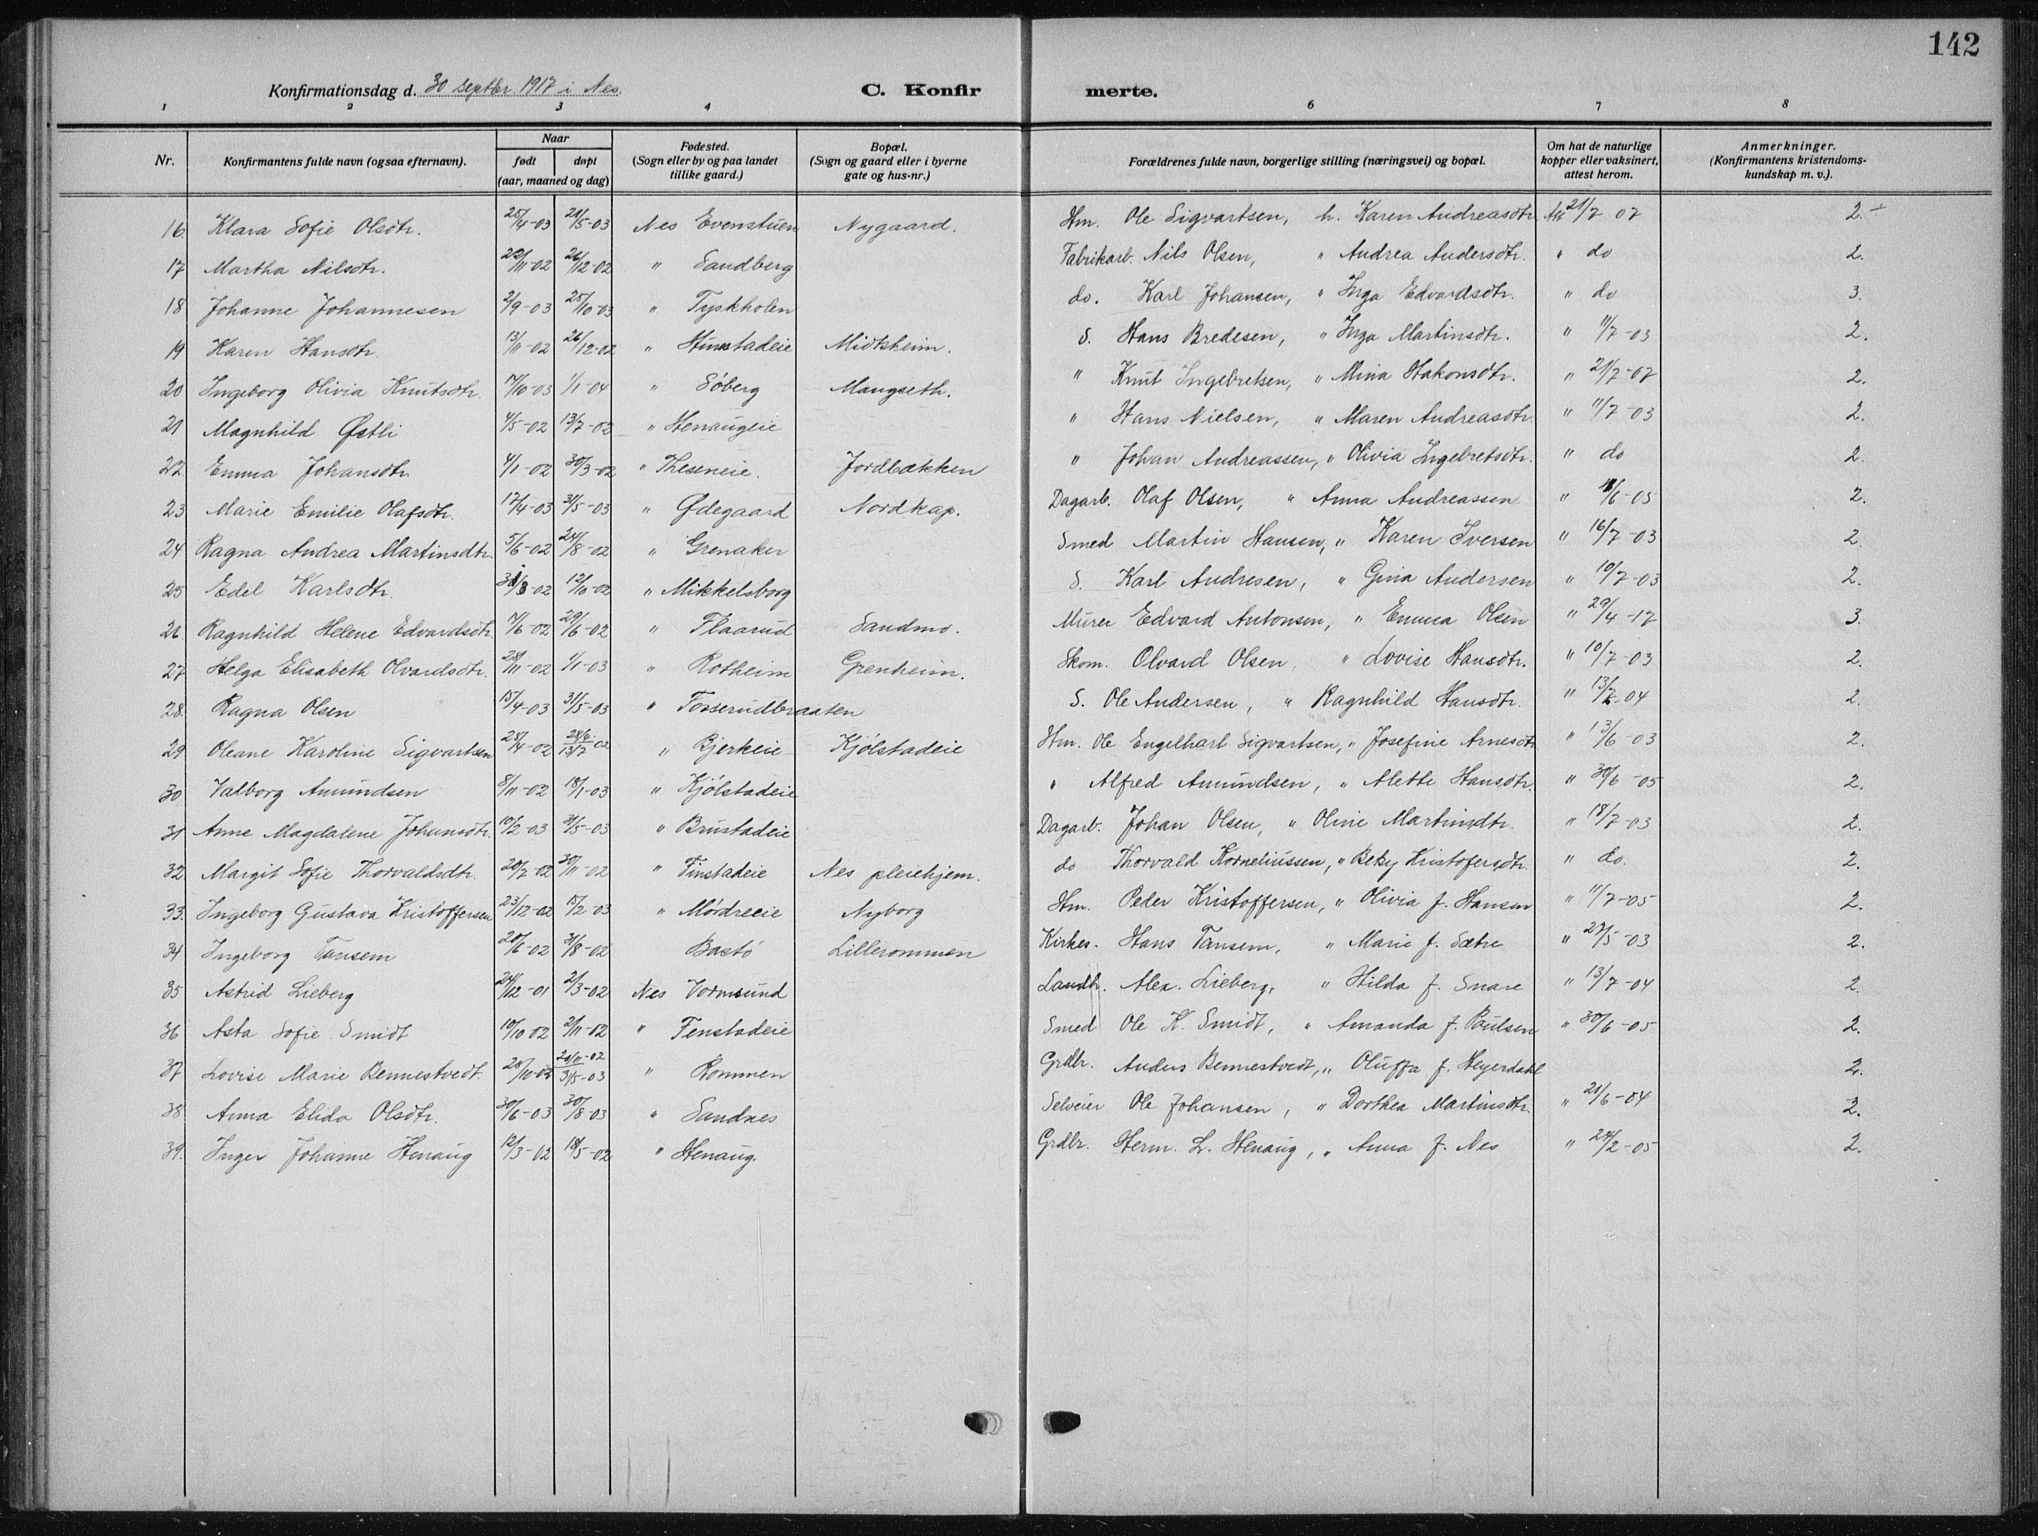 142
Konfirmationsdag d. 30 septbr. 1917 i Nes. C. Konfirmerte.
1 2 3 4 6 7 8
Nr. Konfirmantens fulde navn (ogsaa efternavn). Naar født døpt (aar, maaned og dag) Fødested. (Sogn eller by og paa landet tillike gaard.) Bopæl. (Sogn og gaard eller i byerne gate og hus-nr.) Forældrenes fulde navn, borgerlige stilling (næringsvei) og bopæl. Om hat de naturlige kopper eller vaksinert, attest herom. Anmerkninger. (Konfirmantens kristendoms-kundskap m. v.).
16 Klara Sofie Olsdtr. 25/4-03 21/5-03 Nes Evenstuen Nygaard. Hm. Ole Sigvartsen, h. Karen Andreasdtr. 21/7 07 2.
17 Martha Nilsdtr. 22/11-02 26/12-02 " Sandberg Fabrikarb. Nils Olsen, " Andrea Andersdtr. " do 2.
18 Johanne Johannesen 2/9-03 25/10-03 " Tyskholen do. Karl Johansen, " Inga Edvardsdtr. " do 3.
19 Karen Hansdtr. 13/11-02 26/12-02 " Hunstadeie Midtsheim. S. Hans Bredesen, " Inga Martinsdtr. " 11/7-03 2.
20 Ingeborg Olivia Knutsdtr. 17/10-03 1/1-04 " Søberg Mangseth. " Knut Ingebretsen, " Mina Hakonsdtr. " 21/7-07 2.
21 Magnhild Østli 4/5-02 13/7-02 " Henaugeie " Hans Nielsen, " Maren Andreasdtr. " 11/7-03 2.
22. Emma Johansdtr. 4/1-02 30/3-02 " Theseneie. Jordbækken " Johan Andreassen, " Olivia Ingebretsdtr. " do 2.
23 Marie Emilie Olafsdtr. 17/4-03 31/5-03 " Ødegaard Nordkap. Dagarb. Olaf Olsen, " Anna Andreassen " /6-05 2.
24 Ragna Andrea Martinsdtr. 5/6-02 24/8-02 " Grenaker Smed Martin Hansen, " Karen Iversen " 16/7-03 2.
25 Edel Karlsdtr. 31/3-02 12/10-02 " Mikkelsborg S. Karl Andresen, " Gina Andersen " 10/7-03 2.
26 Ragnhild Helene Edvardsdtr. 7/6-02 29/6-02 " Flaarud Sandmo. Murer Edvard Antonsen, " Emma Olsen " 29/4-17 3.
27 Helga Elisabeth Olvardsdtr. 28/11-02 1/1-03 " Rotheim Grenheim. Skom. Olvard Olsen " Lovise Hansdtr. " 10/7-03 2.
28. Ragna Olsen 15/4-03 31/5-03 " Fosserudbraaten S. Ole Andersen, " Ragnhild Hansdtr. " 13/7-04 2.
29 Oleane Karoline Sigvartsen 28/4-02 28/6 13/7-02 " Bjerkeie Kjölstadeie Hm. Ole Engelhart Sigvartsen, " Josefine Arnesdtr " 13/6-03 2.
30 Valborg Amundsen 8/11-02 18/1-03 " Kjölstadeie " Alfred Amundsen, " Alette Hansdtr. " 30/6-05 2.
31 Anne Magdalene Johansdtr. 10/2-03 31/5-03 " Brustadeie Dagarb. Johan Olsen, " Oline Martinsdtr. " 18/7-03 2.
32 Margit Sofie Thorvaldsdtr. 20/7-02 30/11-02 " Finstadeie Nes pleiehjem. do Thorvald Korneliussen, " Betsy Kristofersdtr. " do. 2.
33. Ingeborg Gustava Kristoffersen 23/12-02 15/2-03 " Mørdreeie Nyborg Hm. Peder Kristoffersen, " Olivia f. Hansen " 11/7-05 2.
34 Ingeborg Tansem 20/6-02 31/8-02 Bastö Lillerommen Kirkes. Hans Tansem, " Marie f. Sætre " 27/5-03 2.
35 Astrid Lieberg 24/12-01 2/3-02 Nes Vormsund Landh. Alex. Lieberg, " Hilda f. Snare " 13/7-04 2.
36 Asta Sofie Smidt 10/10 02 2/11-02 " Fenstadeie Smed Ole K. Smidt, " Amanda f. Paulsen " 30/6-05 2.
37 Lovise Marie Bennestvedt. 28/10-02 20/11-02 31/5-03 " Rommen Grdbr. Anders Bennestvedt, " Oluffa f. Heyerdahl 2.
38 Anna Elida Olsdtr. 30/6-03 30/8-03 " Sandnes Selveier Ole Johansen, " Dorthea Martinsdtr. " 21/6-04 2.
39. Inger Johanne Henaug 12/3-02 18/5-02 " Henaug. Grdbr. Herm. L. Henaug, " Anna f. Nes " 24/2-05 2.